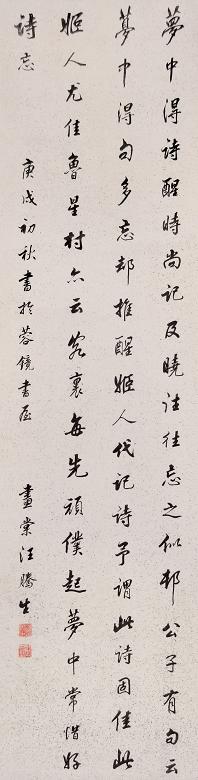 夢中得詩醒時尚記及曉往往忘之似邨公子有句云
夢中得句多忘却推醒姬人代記詩予謂此詩固佳此
姬人尤佳魯星村亦云客裏每先頑僕起夢中常惜好
詩忘
庚戌初秋書於蓉鏡書屋
畫棠汪騰生